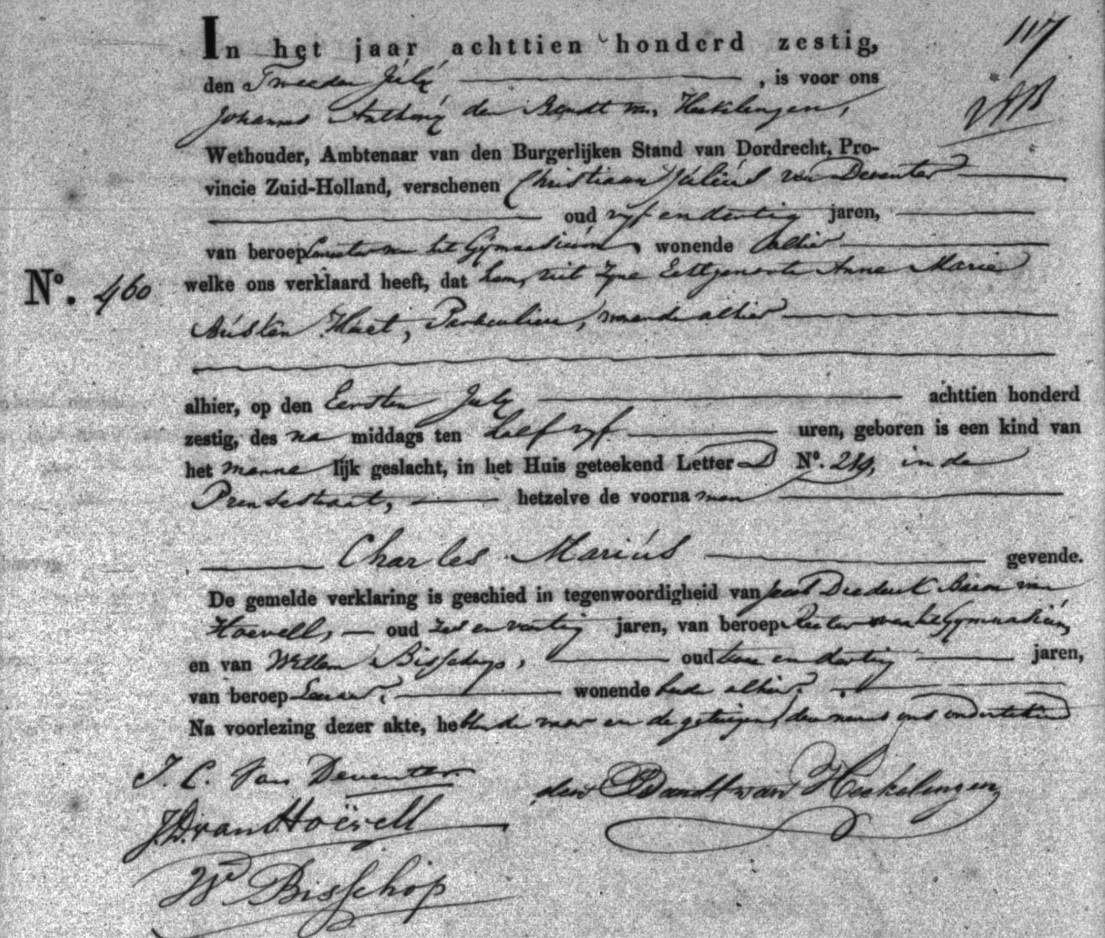 117
In het jaar achttien honderd zestig,
den Tweeden July , is voor ons
Johannes Anthony den Bandt van Heekelingen,
Wethouder, Ambtenaar van den Burgerlijken Stand van Dordrecht, Pro-
vincie Zuid-Holland, verschenen Christiaan Julius van Deventer
oud vyf en dertig jaren,
van beroep aan het Gymnasium, wonende alhier
No. 460
welke ons verklaard heeft, dat hem, uit zyne Echtgenoote Anne Marie
Busken Huet, Particuliere, wonende alhier
alhier, op den Eersten July achttien honderd
zestig, des na middags ten half vyf uren, geboren is een kind van
het manne lijk geslacht, in het Huis geteekend Letter D No. 219, in de
hetzelve de voorna men
Charles Marius gevende.
De gemelde verklaring is geschied in tegenwoordigheid van Diederik Baron van
Hoëvell, oud zes en veertig jaren, van beroep Rector van het Gymnasium,
en van Willem Bisschop, oud en dertig jaren,
van beroep Leeraar, wonende beide alhier.
Na voorlezing dezer akte, hebben de en de getuigen deze nevens ons onderteekend
J. C. van Deventer.
den Bandt van Heekelingen
J. D. van Hoëvell
Wm Bisschop